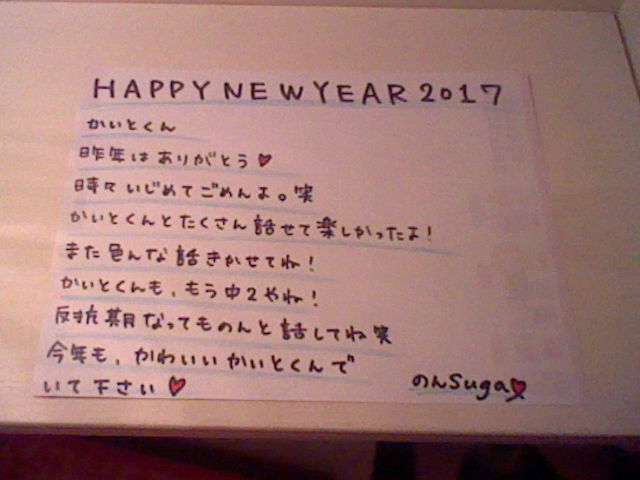 HAPPY NEW YEAR 2017
かいとくん
昨年はありがとう♥
時々いじめてごめんよ。笑
かいとくんとたくさん話せて楽しかったよ!
また色んな話きかせてね!
かいとくんも、もう中2やね!
反抗期なってものんと話してね笑
今年も、かわいいかいとくんで
いて下さい♥
のんSuga♥